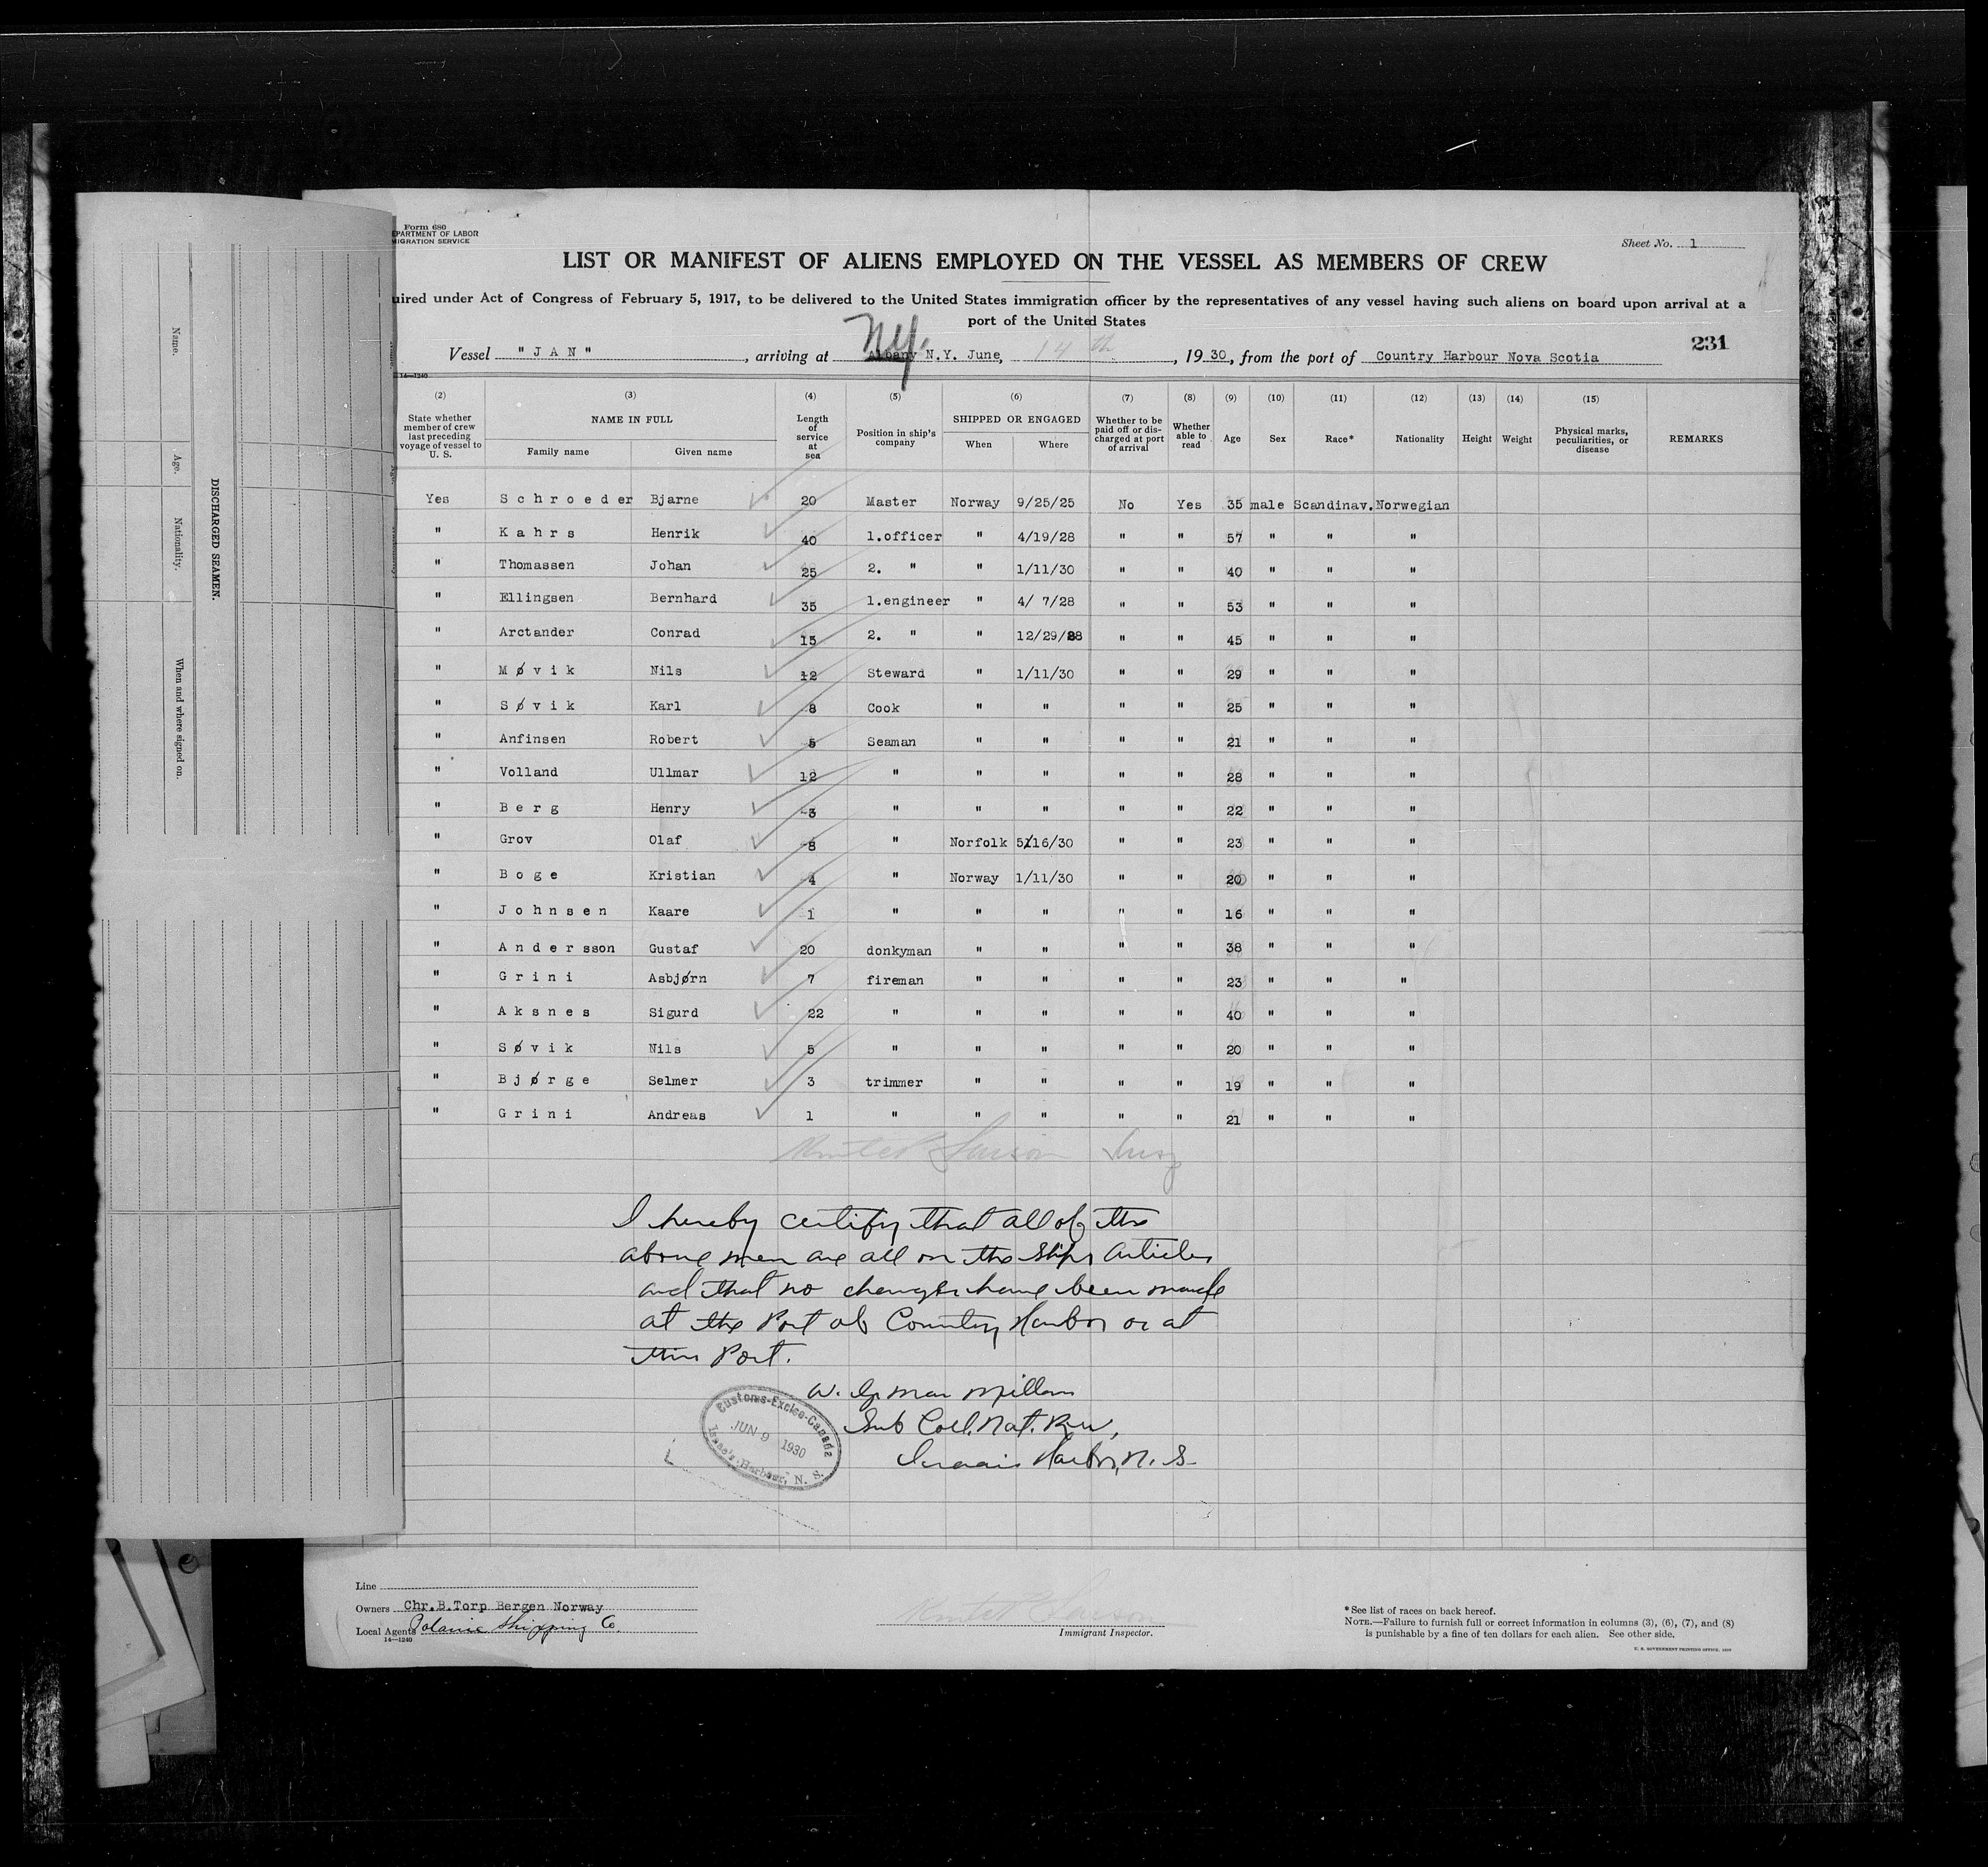 Form 680
EPARTMENT OF LABOR
MIGRATION SERVICE
Sheet No. 1
LIST OR MANIFEST OF ALIENS EMPLOYED ON THE VESSEL AS MEMBERS OF CREW
uired under Act of Congress of February 5, 1917, to be delivered to the United States immigration officer by the representatives of any vessel having such aliens on board upon arrival at a
port of the United States
NY.
231
Vessel "JAN", arriving at Albany N.Y. June, 14th, 1930, from the port of Country Harbour Nova Scotia
14—1240
(2) (3) (4) (5) (6) (7) (8) (9) (10) (11) (12) (13) (14) (15)
State whether member of crew last preceding voyage of vessel to U. S.
NAME IN FULL
Family name Given name
Length of service at sea
Position in ship's company
SHIPPED OR ENGAGED
When Where
Whether to be paid off or discharged at port of arrival
Whether able to read
Age Sex Race* Nationality Height Weight
Physical marks, peculiarities, or disease
REMARKS
Yes Schroeder Bjarne 20 Master Norway 9/25/25 No Yes 35 male Scandinav. Norwegian
" Kahrs Henrik 40 1.officer " 4/19/28 " " 57 " " "
" Thomassen Johan 25 2. " " 1/11/30 " " 40 " " "
" Ellingsen Bernhard 35 1.engineer " 4/ 7/28 " " 53 " " "
" Arctander Conrad 15 2. " " 12/29/28 " " 45 " " "
" Møvik Nils 12 Steward " 1/11/30 " " 29 " " "
" Søvik Karl 8 Cook " " " " 25 " " "
" Anfinsen Robert 5 Seaman " " " " 21 " " "
" Volland Ullmar 12 " " " " " 28 " " "
" Berg Henry 3 " " " " " 22 " " "
" Grov Olaf 8 " Norfolk 5/16/30 " " 23 " " "
" Boge Kristian 4 " Norway 1/11/30 " " 20 " " "
" Johnsen Kaare 1 " " " " " 16 " " "
" Andersson Gustaf 20 donkyman " " " " 38 " " "
" Grini Asbjørn 7 fireman " " " " 23 " " "
" Aksnes Sigurd 22 " " " " " 40 " " "
" Søvik Nils 5 " " " " " 20 " " "
" Bjørge Selmer 3 trimmer " " " " 19 " " "
" Grini Andreas 1 " " " " " 21 " " "
Larson Insp
I hereby certify that all of the
above men are all on the Ships Articles
and that no changes have been made
at the Port of Country Harbor or at
this Port.
W. G. MacMillan
Sub Coll. Nat. Rev,
Isaac's Harbor, N. S.
Customs-Excise-Canada
JUN 9 1930
Isaac's Harbour, N. S.
Line
Owners Chr.B.Torp Bergen Norway
Local Agents Shipping Co.
14—1240
Larson
Immigrant Inspector.
*See list of races on back hereof.
NOTE.—Failure to furnish full or correct information in columns (3), (6), (7), and (8)
is punishable by a fine of ten dollars for each alien. See other side.
U. S. GOVERNMENT PRINTING OFFICE
DISCHARGED SEAMEN.
Name.
Age.
Nationality.
When and where signed on.